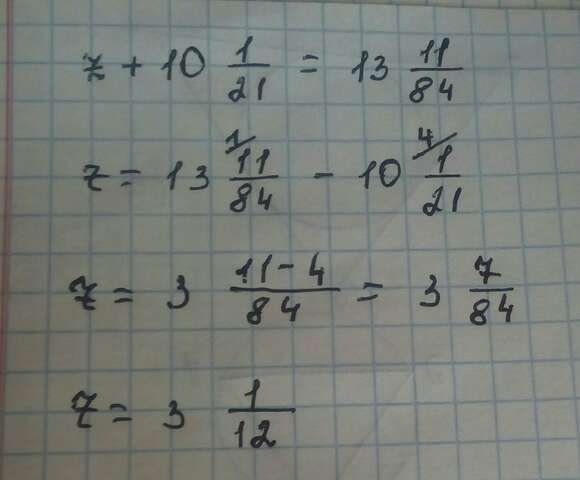 z + 10 1/21 = 13 11/84
z = 13 1/ 11/84 - 10 4/ 1/21
z = 3 11-4/84 = 3 7/84
z = 3 1/12